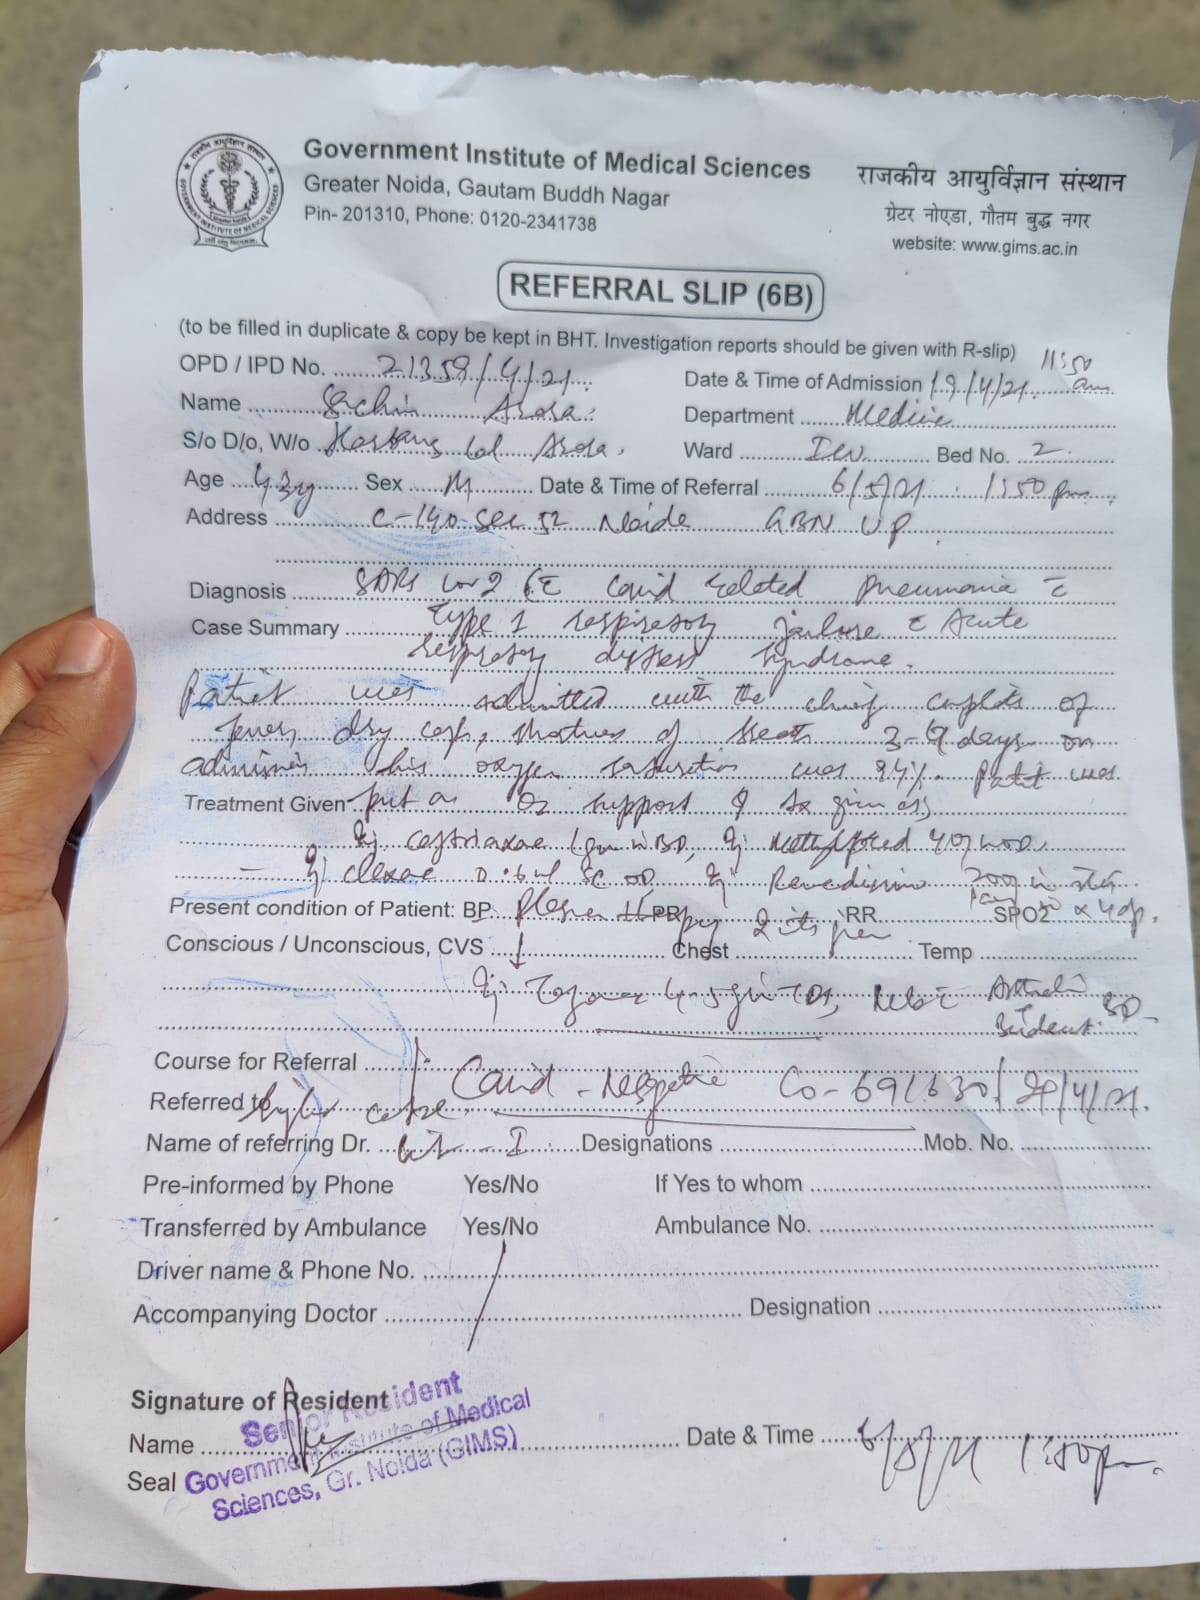 Government Institute of Medical Sciences
Greater Noida, Gautam Buddh Nagar
Pin- 201310, Phone: 0120-2341738
राजकीय आयुर्विज्ञान संस्थान
ग्रेटर नोएडा, गौतम बुद्ध नगर
website: www.gims.ac.in
REFERRAL SLIP (6B)
(to be filled in duplicate & copy be kept in BHT. Investigation reports should be given with R-slip)
OPD / IPD No. 21359/4/21 Date & Time of Admission 19/4/21 11:50 am
Name Sachin Arora Department Medicine
S/o D/o, W/o Lal Arora Ward ICU Bed No. 2
Age 43y Sex M Date & Time of Referral 6/5/21 1:50 pm
Address C-140 Sec 52 Noida GBN UP
Diagnosis SARS Cov 2 Covid related pneumonia c̄
Case Summary Type 1 respiratory failure c̄ Acute
respiratory distress syndrome.
Patient was admitted with the chief complaints of
fever, dry cough, shortness of breath 3-4 days on
admission his oxygen saturation was 84%. Patient was
Treatment Given put on O2 support & given as
Inj ceftriaxone 1gm iv BD, Inj 40mg
- Inj clexane 0.6ml SC OD Inj Remdesivir
Present condition of Patient: BP Plasma PR RR SPO2
Conscious / Unconscious, CVS Chest Temp
Inj 4.5gm TDS, Neb c̄
BD
Course for Referral Covid - Negative Co-691630/
Referred to higher centre
Name of referring Dr. Designations Mob. No.
Pre-informed by Phone Yes/No If Yes to whom
Transferred by Ambulance Yes/No Ambulance No.
Driver name & Phone No.
Accompanying Doctor Designation
Signature of Resident
Senior Resident
Name Date & Time 6/5/21 1:50pm
Seal Government Institute of Medical
Sciences, Gr. Noida (GIMS)